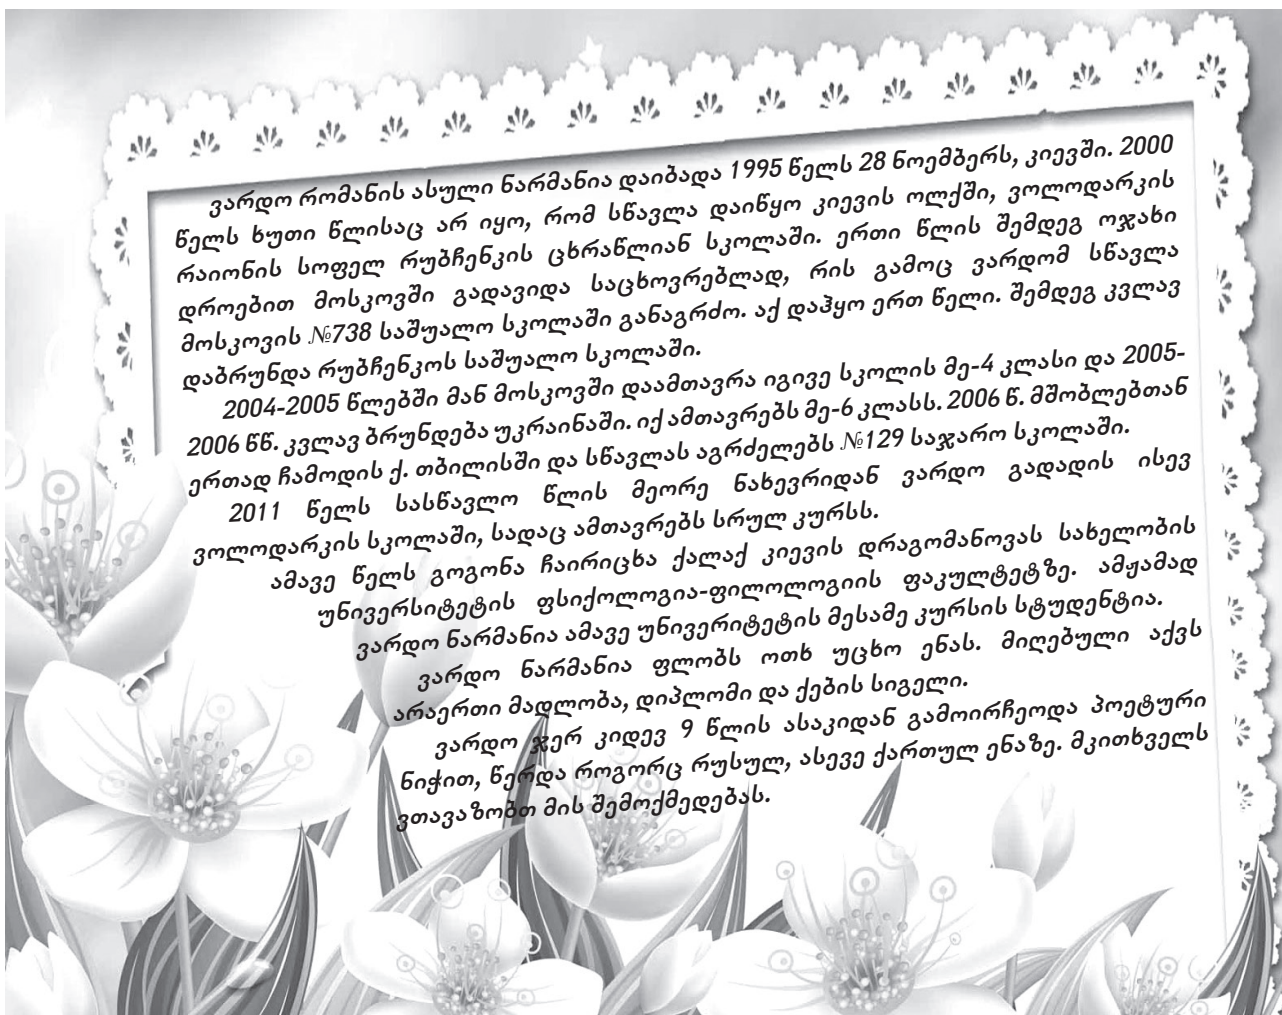 ვარდო რომანის ასული ნარმანია დაიბადა 1995 წელს 28 ნოემბერს, კიევში. 2000
წელს ხუთი წლისაც არ იყო, რომ სწავლა დაიწყო კიევის ოლქში, ვოლოდარკის
რაიონის სოფელ რუბჩენკის ცხრაწლიან სკოლაში. ერთი წლის შემდეგ ოჯახი
დროებით მოსკოვში გადავიდა საცხოვრებლად, რის გამოც ვარდომ სწავლა
მოსკოვის №738 საშუალო სკოლაში განაგრძო. აქ დაჰყო ერთ წელი. შემდეგ კვლავ
დაბრუნდა რუბჩენკოს საშუალო სკოლაში.
2004-2005 წლებში მან მოსკოვში დაამთავრა იგივე სკოლის მე-4 კლასი და 2005-
2006 წწ. კვლავ ბრუნდება უკრაინაში. იქ ამთავრებს მე-6 კლასს. 2006 წ. მშობლებთან
ერთად ჩამოდის ქ. თბილისში და სწავლას აგრძელებს №129 საჯარო სკოლაში.
2011 წელს სასწავლო წლის მეორე ნახევრიდან ვარდო გადადის ისევ
ვოლოდარკის სკოლაში, სადაც ამთავრებს სრულ კურსს.
ამავე წელს გოგონა ჩაირიცხა ქალაქ კიევის დრაგომანოვას სახელობის
უნივერსიტეტის ფსიქოლოგია-ფილოლოგიის ფაკულტეტზე. ამჟამად
ვარდო ნარმანია ამავე უნივერიტეტის მესამე კურსის სტუდენტია.
ვარდო ნარმანია ფლობს ოთხ უცხო ენას. მიღებული აქვს
არაერთი მადლობა, დიპლომი და ქების სიგელი.
ვარდო ჯერ კიდევ 9 წლის ასაკიდან გამოირჩეოდა პოეტური
ნიჭით, წერდა როგორც რუსულ, ასევე ქართულ ენაზე. მკითხველს
ვთავაზობთ მის შემოქმედებას.